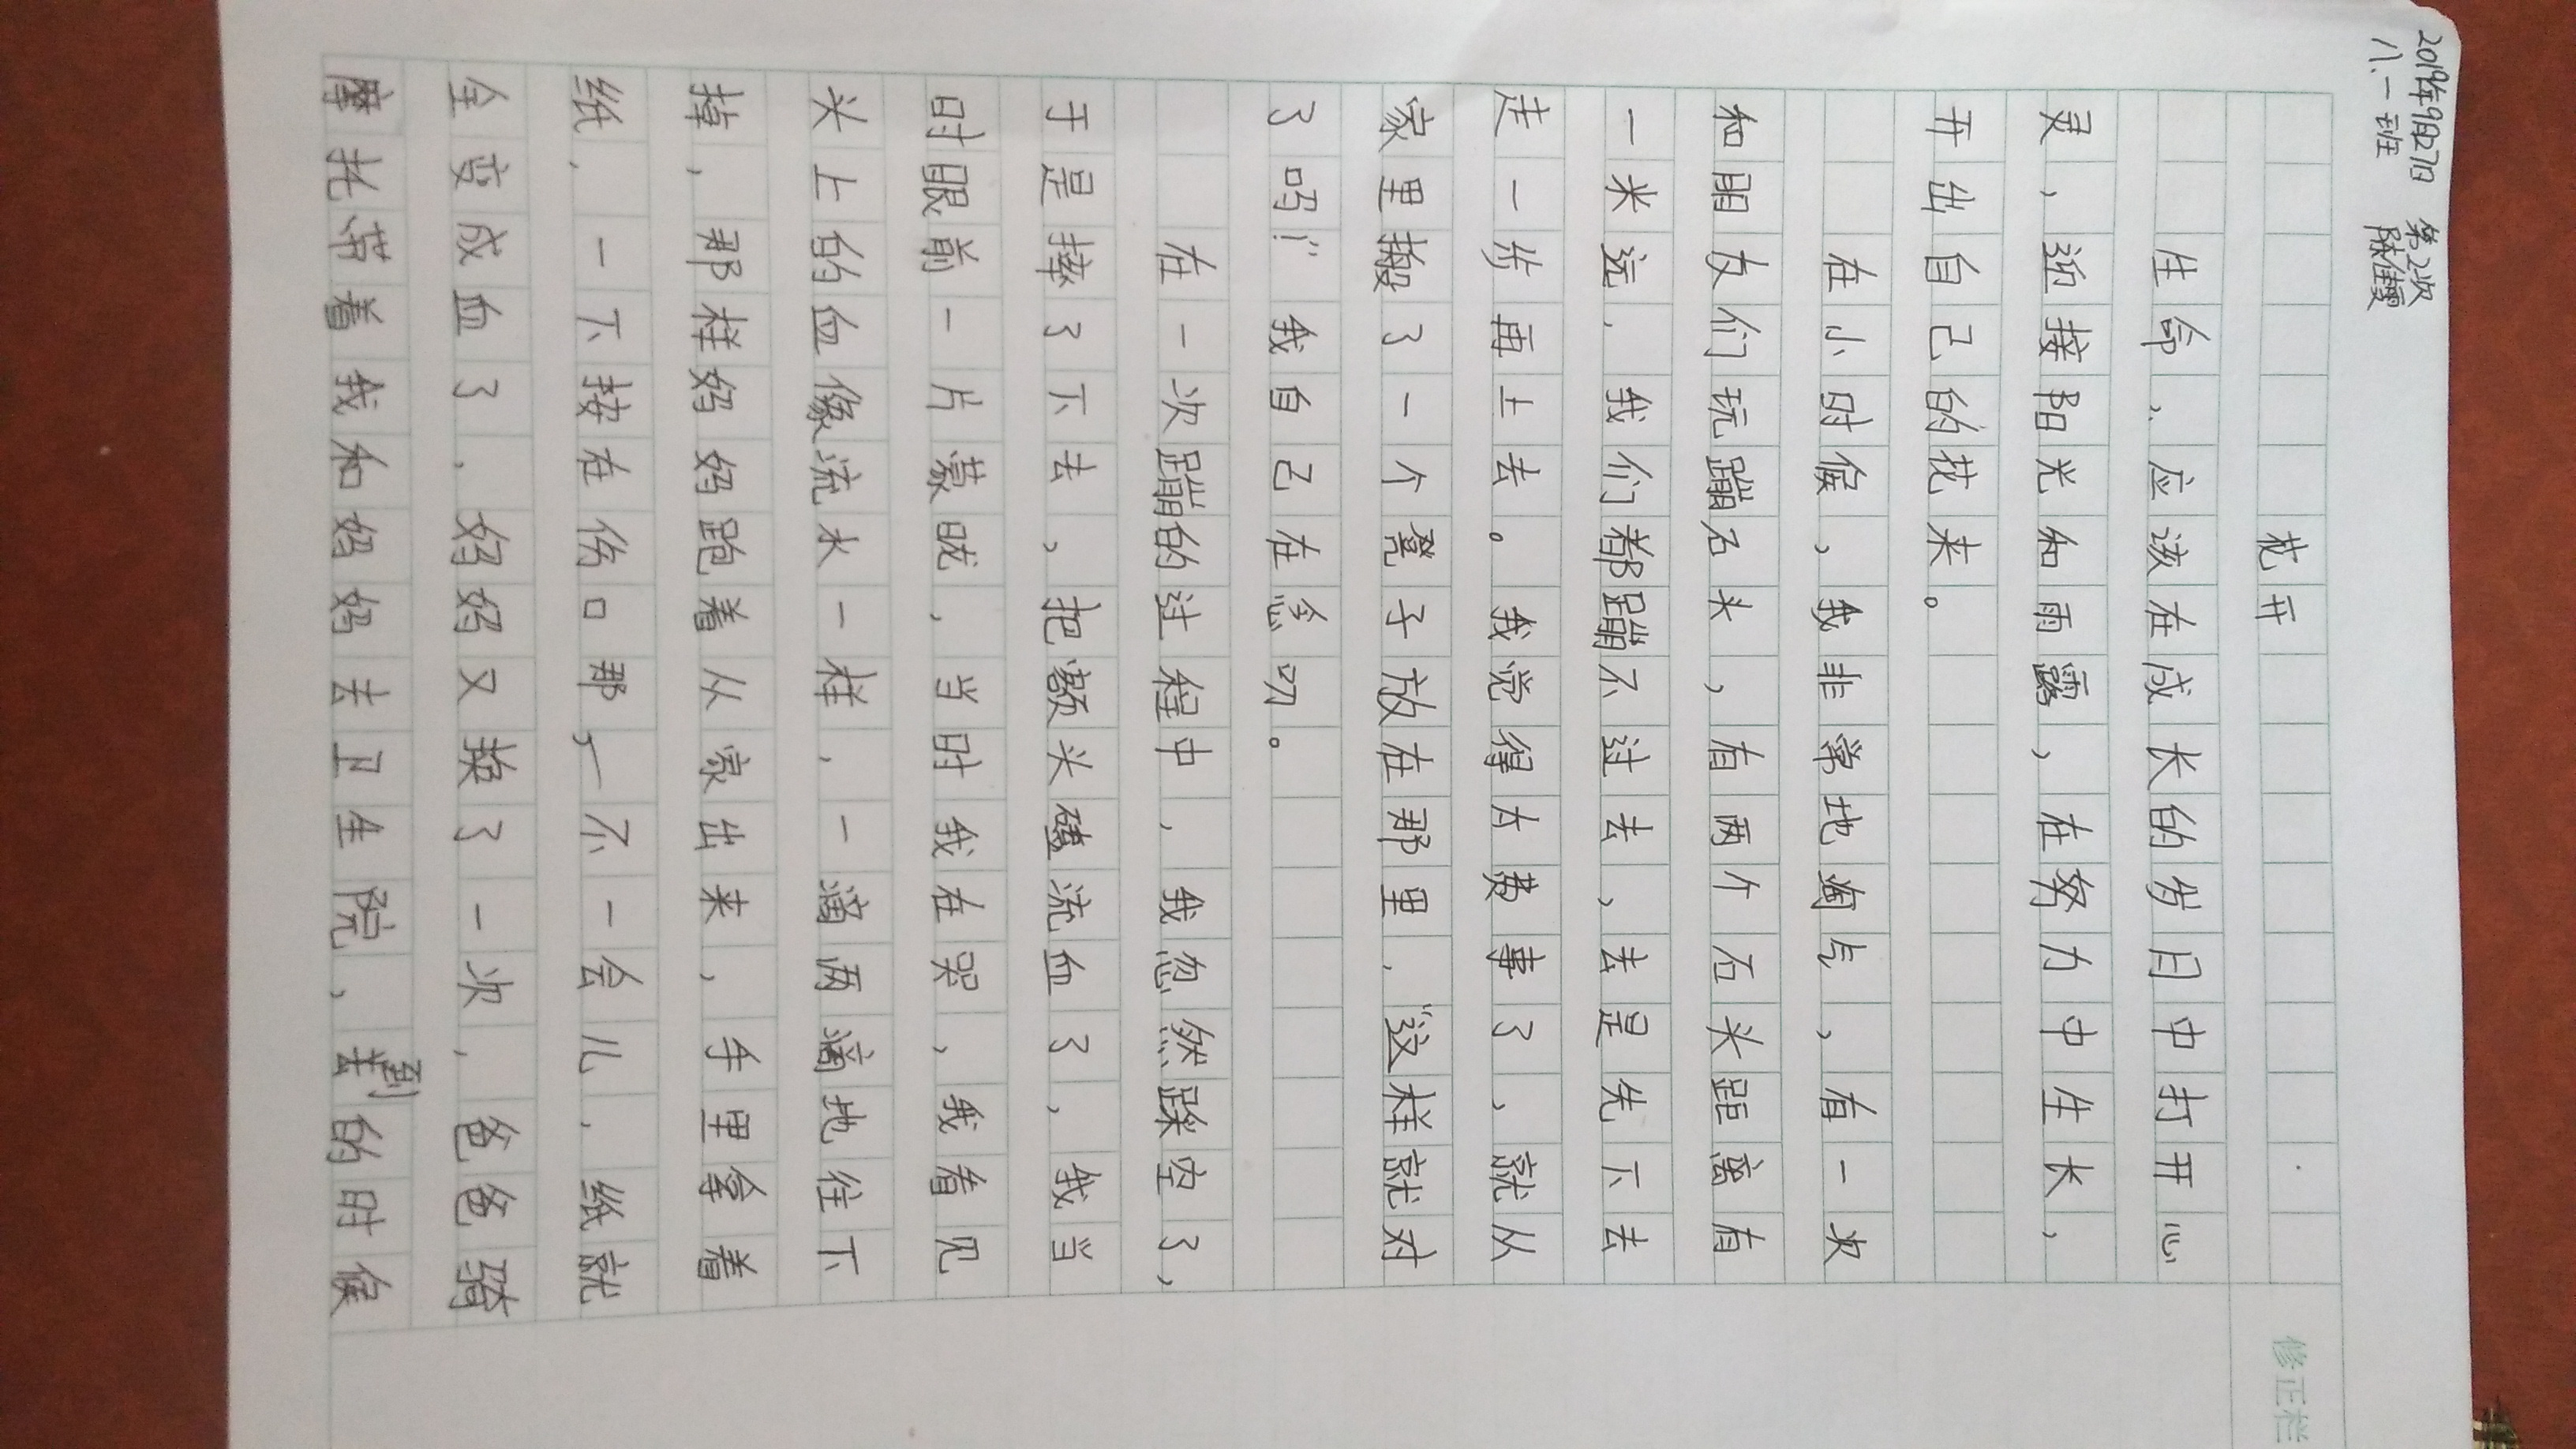 2019年9月27日 第2次
八.一班 陈佳
花开
生命，应该在成长的岁月中打开心
灵，迎接阳光和雨露，在努力中生长，
开出自己的花来。
在小时候，我非常地淘气，有一次
和朋友们玩蹦石头，有两个石头距离有
一米远，我们都蹦不过去，去是先下去
走一步再上去。我觉得太费事了，就从
家里搬了一个凳子放在那里，“这样就对
了吗！”我自己在念叨。
在一次蹦的过程中，我忽然踩空了，
于是摔了下去，把额头磕流血了，我当
时眼前一片蒙眬，当时我在哭，我看见
头上的血像流水一样，一滴两滴地往下
掉，那样妈妈跑着从家出来，手里拿着
纸，一下按在伤口那，一不一会儿，纸就
全变成血了，妈妈又换了一次，爸爸骑
摩托带着我和妈妈去卫生院，去到的时候
修正栏